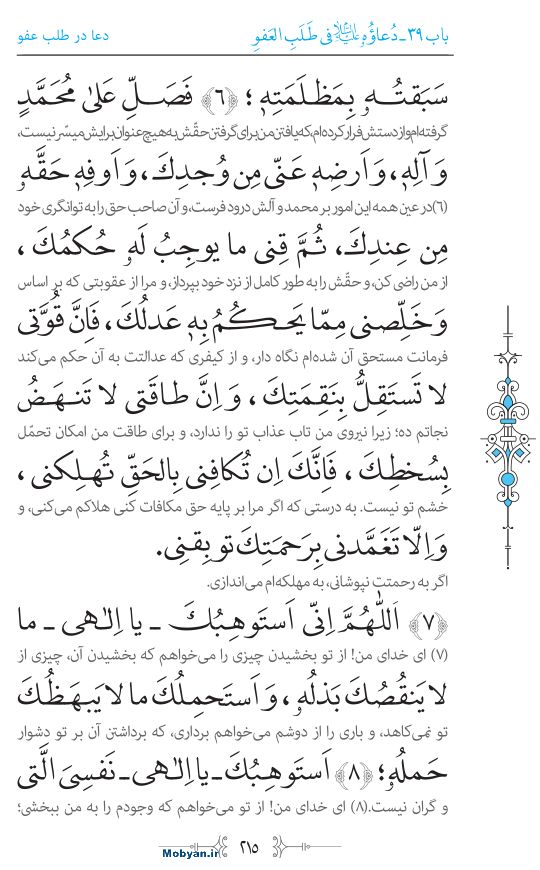 باب ۳۹ - دُعاؤُهُ علیه‌السلام فی طَلَبِ العَفوِ
دعا در طلب عفو
سَبَقتُـهُ بِمَظلَمَتِهِ؛ ﴿۶﴾ فَصَـلِّ عَلیٰ مُحَمَّدٍ
گرفته‌ام و از دستش فرار کرده‌ام، که یافتن من برای گرفتن حقّش به هیچ عنوان برایش میسّر نیست،
وَ آلِهِ، وَ اَرضِهِ عَنّی مِن وُجدِكَ، وَ اَوفِهِ حَقَّهُ
(۶) در عین همه این امور بر محمد و آلش درود فرست، و آن صاحب حق را به توانگری خود
مِن عِندِكَ، ثُمَّ قِنی ما یوجِبُ لَهُ حُکمُكَ،
از من راضی کن، و حقّش را به طور کامل از نزد خود بپرداز، و مرا از عقوبتی که بر اساس
وَ خَلِّصنی مِمّا یَحـکُمُ بِهِ عَدلُكَ، فَاِنَّ قُوَّتی
فرمانت مستحق آن شده‌ام نگاه دار، و از کیفری که عدالتت به آن حکم می‌کند
لا تَستَقِلُّ بِنَقِمَتِكَ، وَ اِنَّ طاقَتی لا تَنـهَضُ
نجاتم ده؛ زیرا نیروی من تاب عذاب تو را ندارد، و برای طاقت من امکان تحمّل
بِسُخطِـكَ، فَاِنَّكَ اِن تُکافِنی بِالحَقِّ تُهـلِکنی،
خشم تو نیست. به درستی که اگر مرا بر پایه حق مکافات کنی هلاکم می‌کنی، و
وَ اِلّا تَغَمَّدنی بِرَحمَتِكَ تو بِقنی.
اگر به رحمتت نپوشانی، به مهلکه‌ام می‌اندازی.
﴿۷﴾ اَللّٰهُمَّ اِنّی اَستَوهِبُكَ ـ یا اِلـٰهی ـ ما
(۷) ای خدای من! از تو بخشیدن چیزی را می‌خواهم که بخشیدن آن، چیزی از
لا یَنقُصُكَ بَذلُهُ، وَ اَستَحمِلُكَ ما لا یَبهَظُكَ
تو نمی‌کاهد، و باری را از دوشم می‌خواهم برداری، که برداشتن آن بر تو دشوار
حَملُهُ؛ ﴿۸﴾ اَستَوهِبُكَ ـ یا اِلـٰهی ـ نَفسِیَ الَّتی
و گران نیست. (۸) ای خدای من! از تو می‌خواهم که وجودم را به من ببخشی؛
۲۱۵
Mobyan.ir